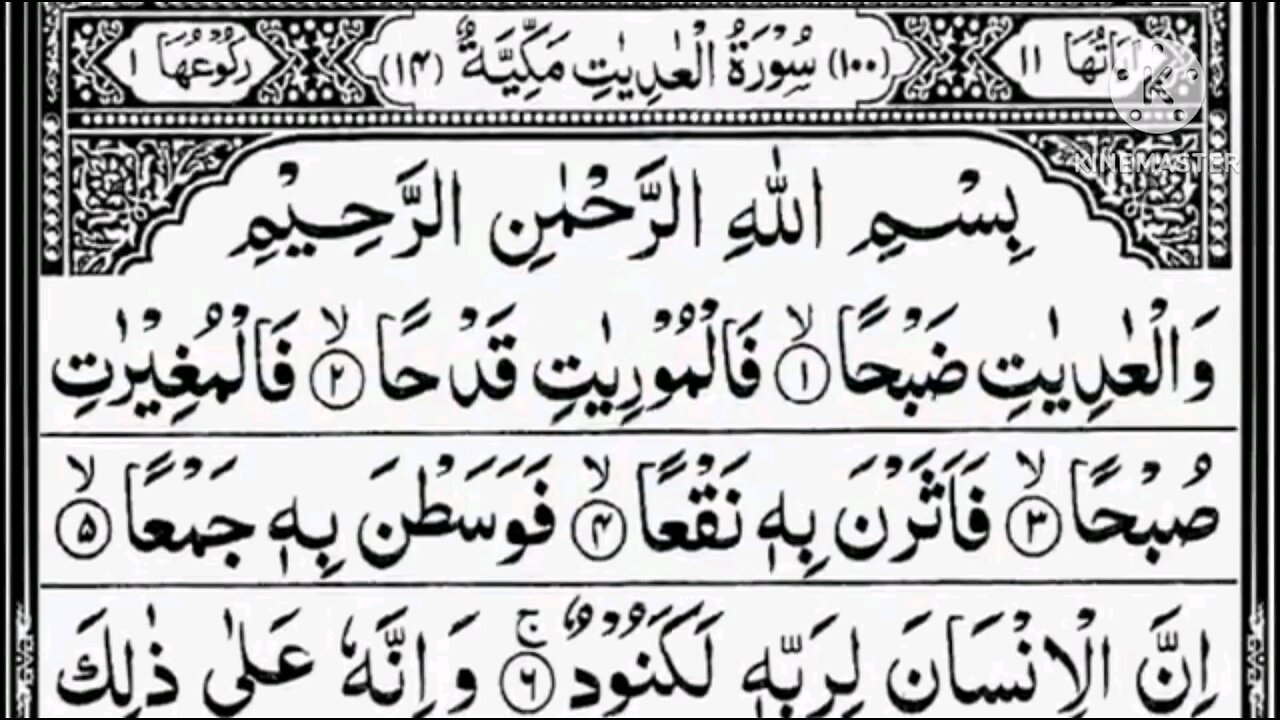 اٰیَاتُهَا ۱۱ (۱۰۰) سُوْرَةُ الْعٰدِیٰتِ مَكِّیَّةٌ (۱۴) رُكُوْعُهَا ۱
KINEMASTER
بِسْمِ اللّٰهِ الرَّحْمٰنِ الرَّحِیْمِ
وَالْعٰدِیٰتِ ضَبْحًا ۙ‏﴿۱﴾ فَالْمُوْرِیٰتِ قَدْحًا ۙ‏﴿۲﴾ فَالْمُغِیْرٰتِ
صُبْحًا ۙ‏﴿۳﴾ فَاَثَرْنَ بِهٖ نَقْعًا ۙ‏﴿۴﴾ فَوَسَطْنَ بِهٖ جَمْعًا ۙ‏﴿۵﴾
اِنَّ الْاِنْسَانَ لِرَبِّهٖ لَكَنُوْدٌ ۚ‏﴿۶﴾ وَ اِنَّهٗ عَلٰی ذٰلِكَ